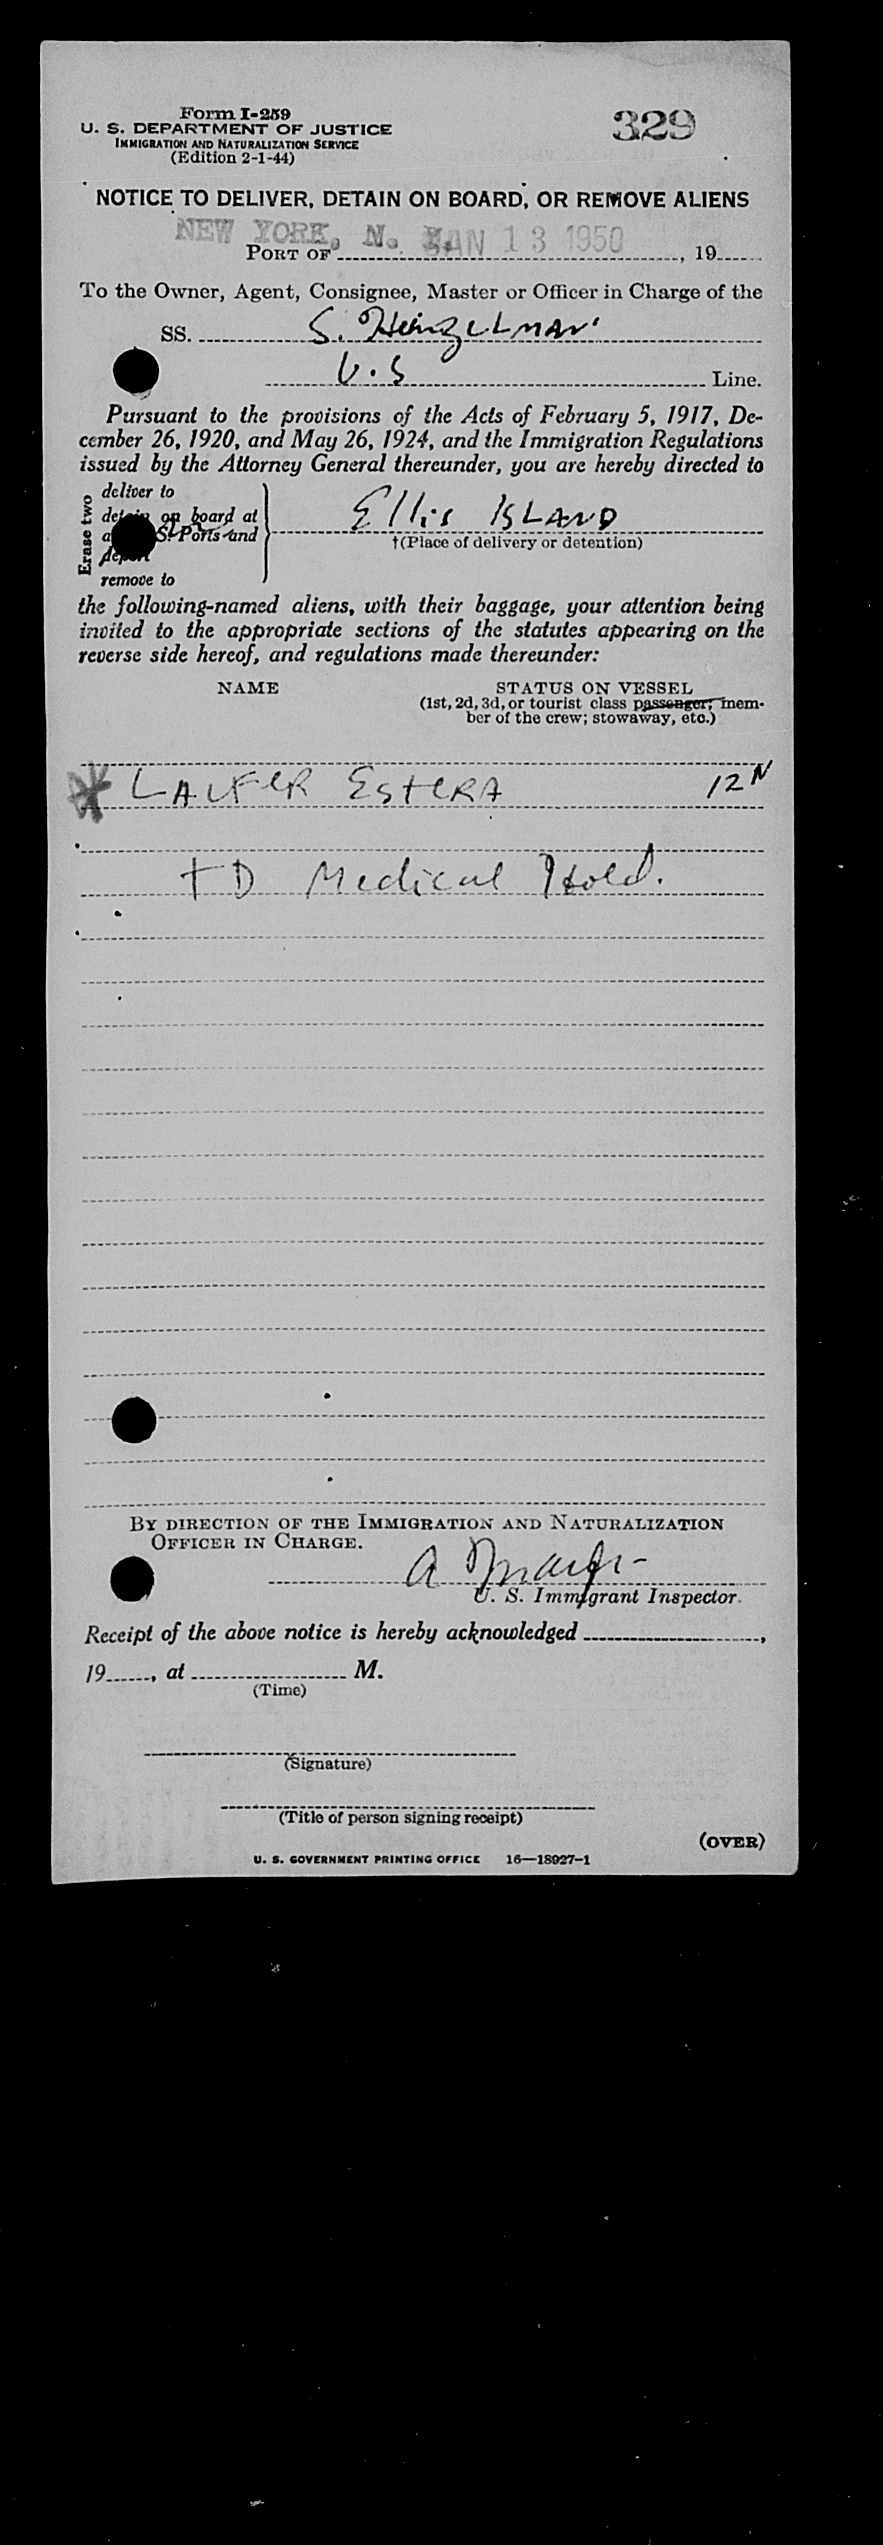 Form I-259
U. S. DEPARTMENT OF JUSTICE
IMMIGRATION AND NATURALIZATION SERVICE
(Edition 2-1-44)
329
NOTICE TO DELIVER, DETAIN ON BOARD, OR REMOVE ALIENS
NEW YORK, N. Y. JAN 13 1950
PORT OF , 19
To the Owner, Agent, Consignee, Master or Officer in Charge of the
SS. S. Heinzelman
U.S Line.
Pursuant to the provisions of the Acts of February 5, 1917, De-
cember 26, 1920, and May 26, 1924, and the Immigration Regulations
issued by the Attorney General thereunder, you are hereby directed to
Erase two
deliver to
detain on board at
S. Ports and
deport
remove to
Ellis ISLAND
†(Place of delivery or detention)
the following-named aliens, with their baggage, your attention being
invited to the appropriate sections of the statutes appearing on the
reverse side hereof, and regulations made thereunder:
NAME STATUS ON VESSEL
(1st, 2d, 3d, or tourist class passenger; mem-
ber of the crew; stowaway, etc.)
LAUFER ESTERA 12 N
TD Medical Hold.
BY DIRECTION OF THE IMMIGRATION AND NATURALIZATION
OFFICER IN CHARGE.
U. S. Immigrant Inspector.
Receipt of the above notice is hereby acknowledged ,
19 , at M.
(Time)
(Signature)
(Title of person signing receipt)
(OVER)
U. S. GOVERNMENT PRINTING OFFICE 16—18927-1